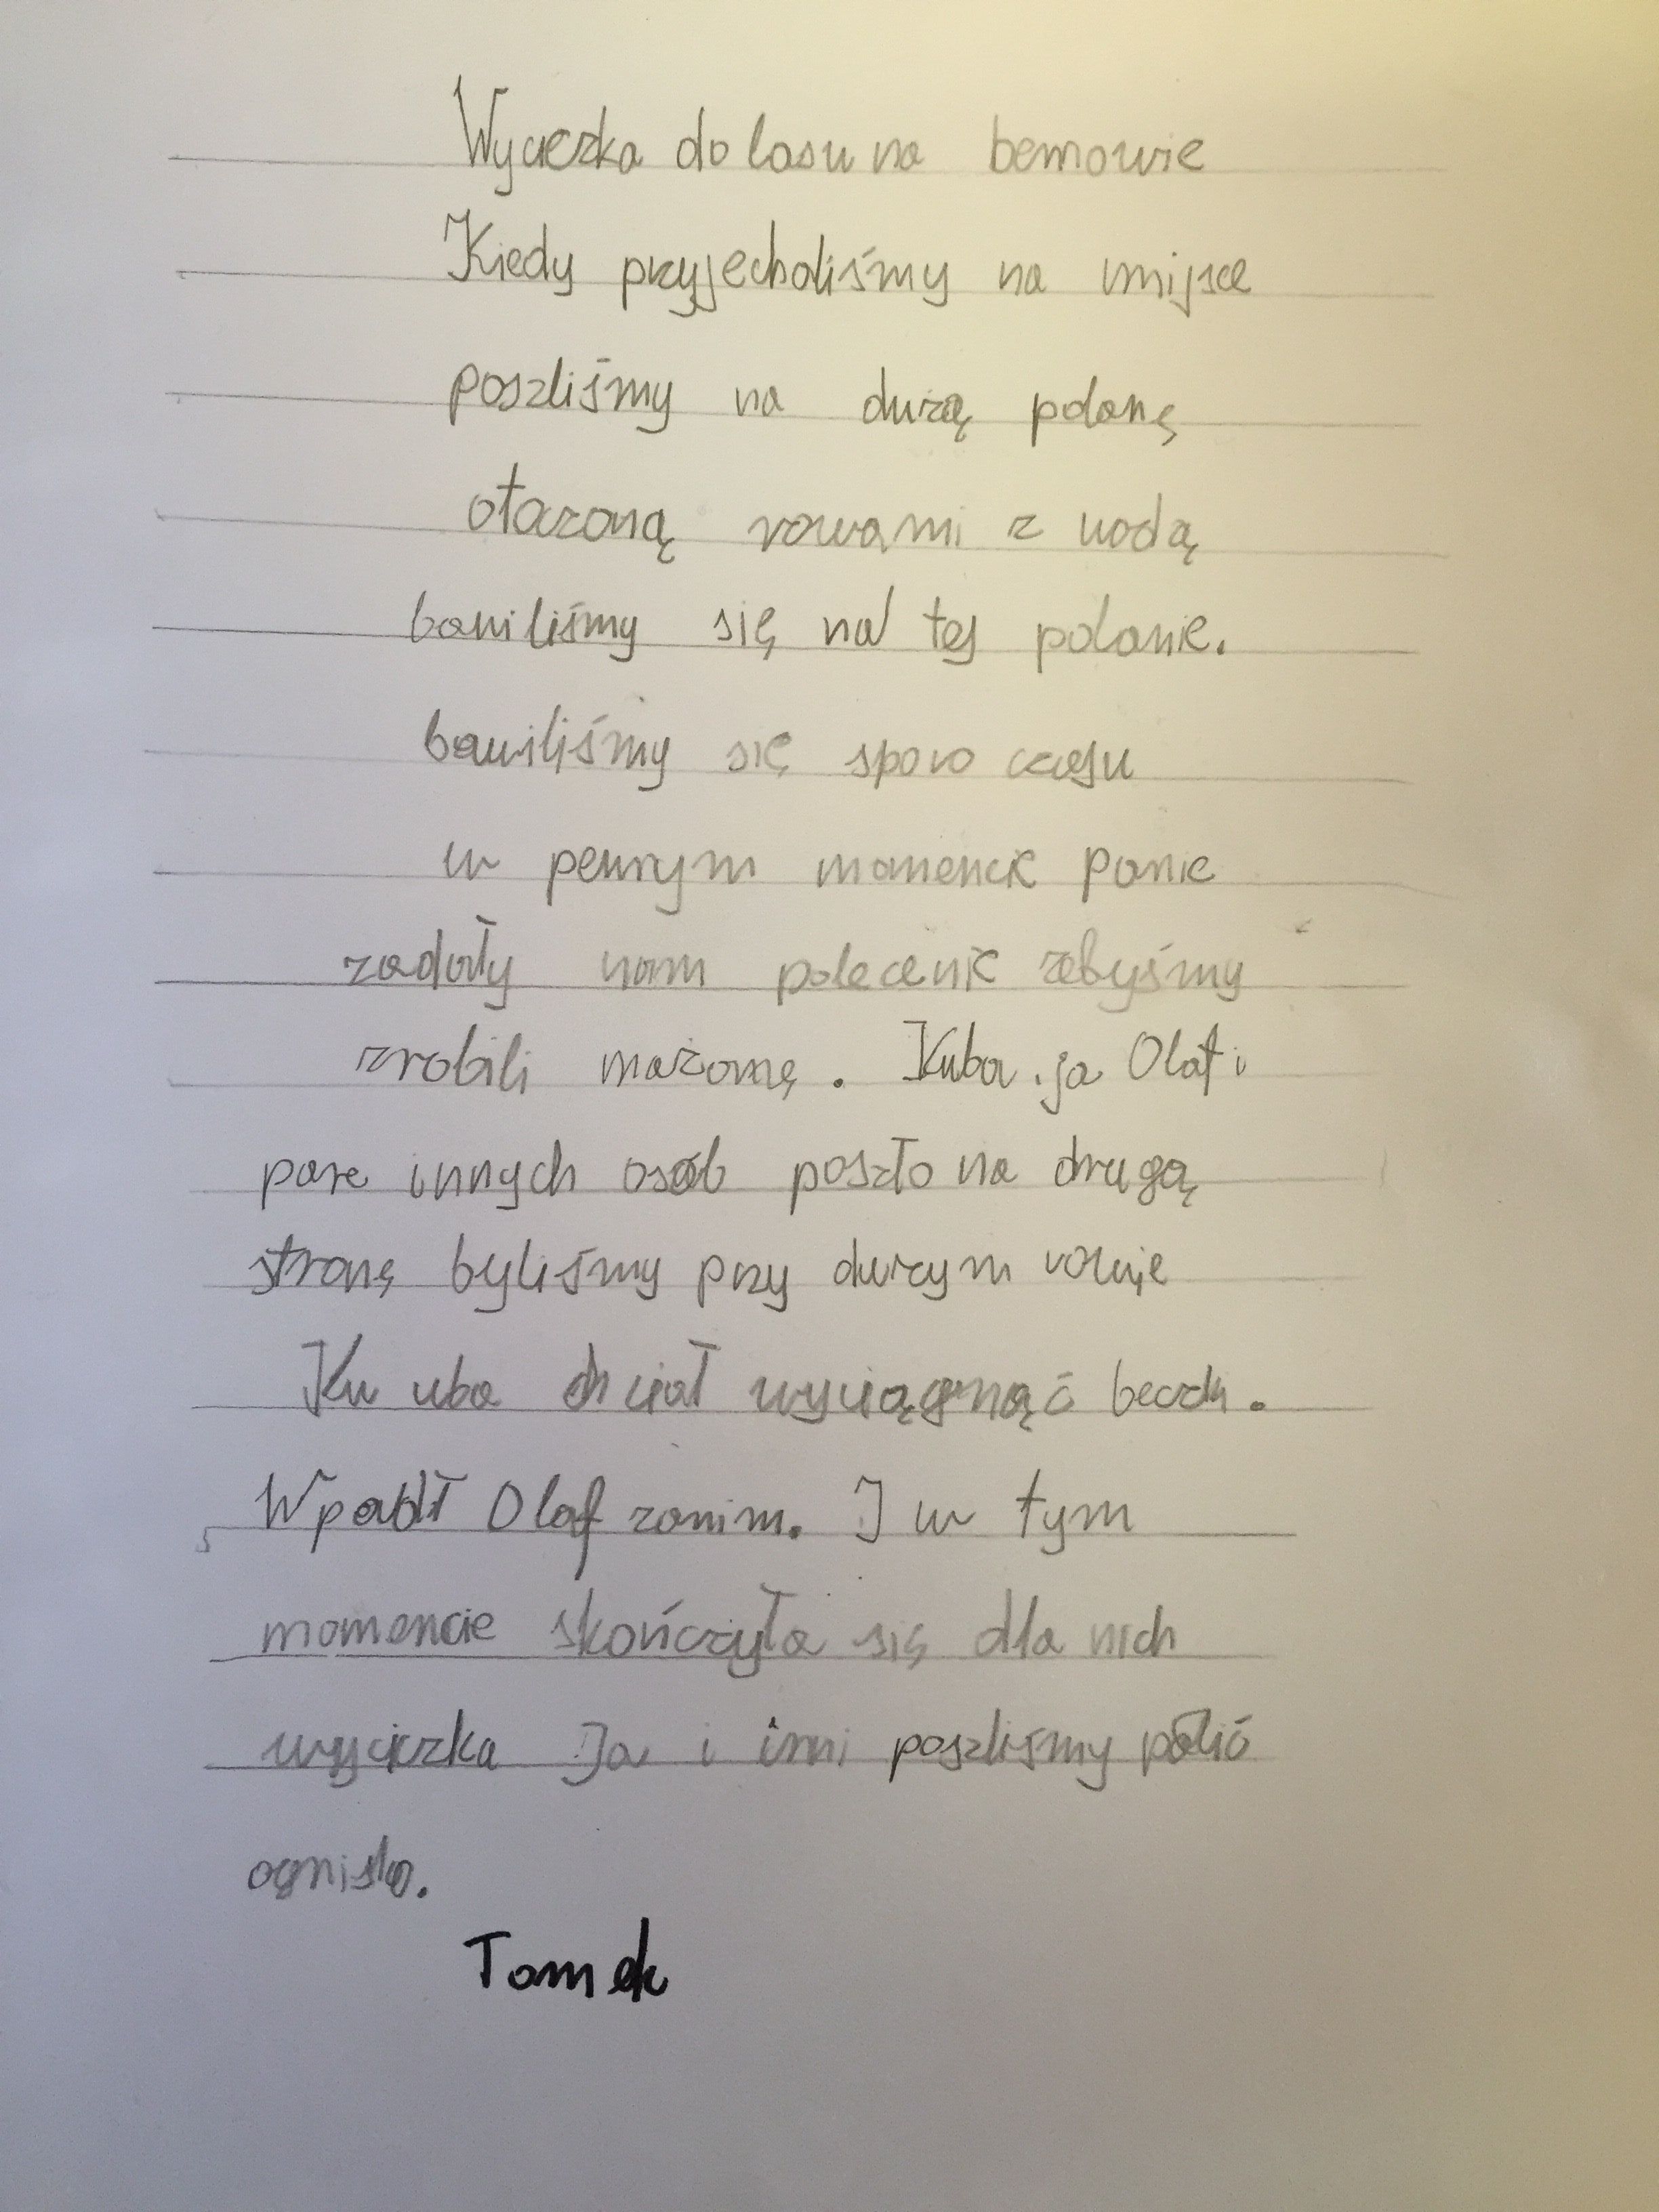 Wycieczka do lasu na bemowie
Kiedy przyjechaliśmy na miejsce
poszliśmy na dużą polanę
otaczoną rowami z wodą
bawiliśmy się na tej polanie.
bawiliśmy się sporo czasu
w pewnym momencie panie
zadały nam polecenie żebyśmy
zrobili marzannę. Kuba ja Olaf i
pare innych osób poszło na drugą
stronę byliśmy przy dużym rowie
Ku uba chciał wyciągnąć
Wpadł Olaf zanim. I w tym
momencie skończyła się dla nich
wycieczka Ja i inni poszliśmy palić
ognisko.
Tomek